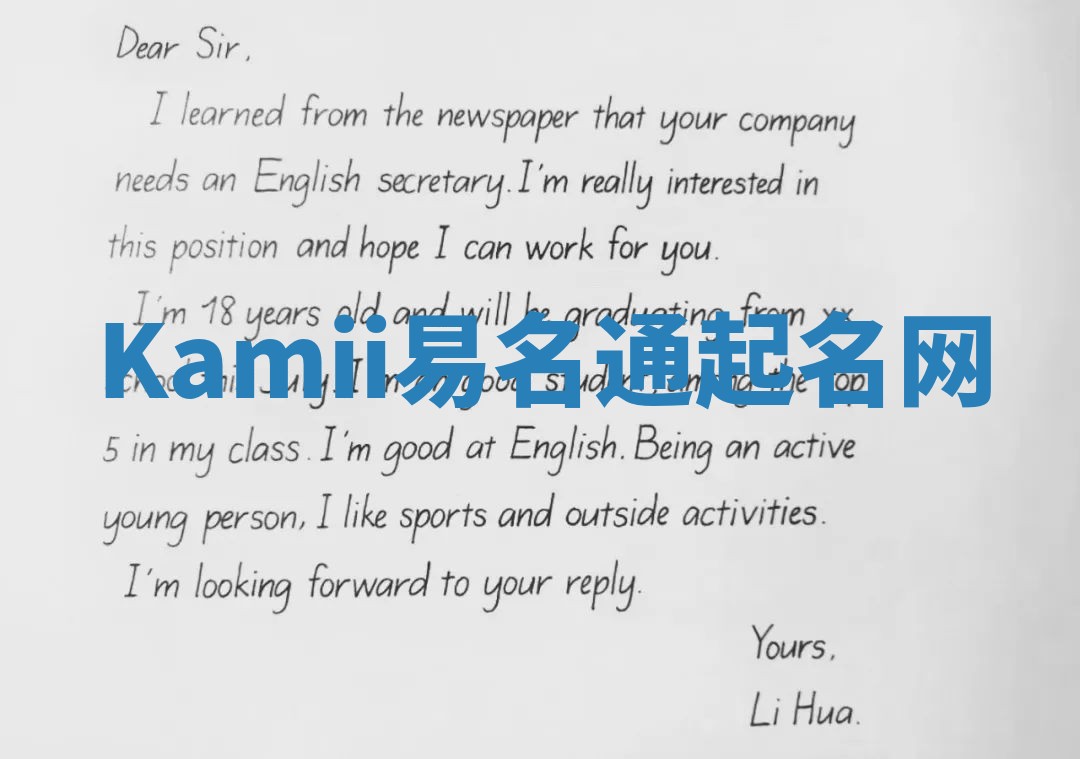 Dear Sir,
I learned from the newspaper that your company
needs an English secretary. I'm really interested in
this position and hope I can work for you.
I'm 18 years old and will be graduating from xx
Kamii易名通起名网
school this July. I'm a good student, among the top
5 in my class. I'm good at English. Being an active
young person, I like sports and outside activities.
I'm looking forward to your reply.
Yours,
Li Hua.